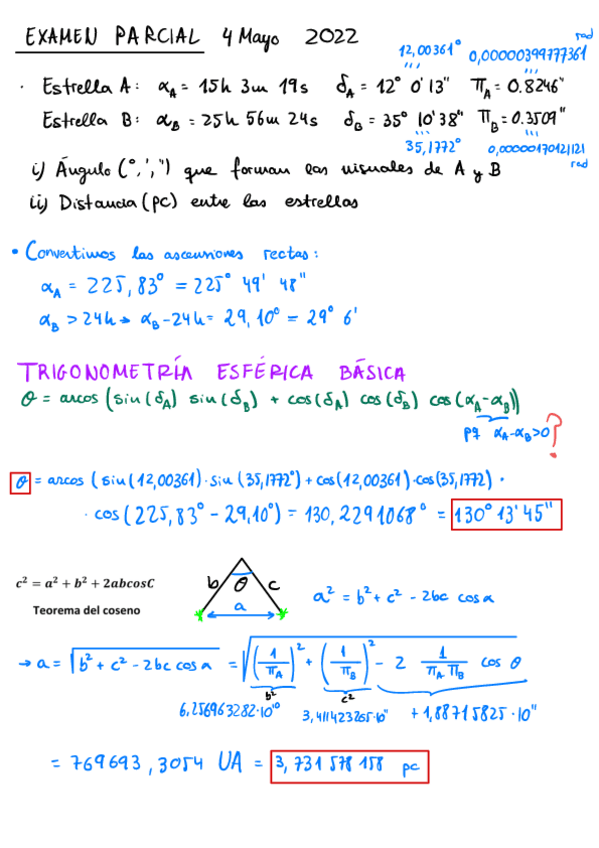 EXAMEN PARCIAL 4 Mayo 2022
12,00361° 0,00000399777361 rad
· Estrella A: α_A = 15h 3m 19s δ_A = 12° 0' 13" Π_A = 0.8246"
Estrella B: α_B = 25h 56m 24s δ_B = 35° 10' 38" Π_B = 0.3509"
35,1772° 0,00000170121121 rad
i) Ángulo (°,',") que forman las visuales de A y B
ii) Distancia (pc) entre las estrellas
• Convertimos las ascensiones rectas:
α_A = 225,83° = 225° 49' 48"
α_B > 24h → α_B - 24h = 29,10° = 29° 6'
TRIGONOMETRÍA ESFÉRICA BÁSICA
θ = arcos (sin(δ_A) sin(δ_B) + cos(δ_A) cos(δ_B) cos(α_A - α_B))
pq α_A - α_B > 0 ?
θ = arcos (sin(12,00361) · sin(35,1772°) + cos(12,00361) · cos(35,1772) ·
· cos(225,83° - 29,10°) = 130,2291068° = 130° 13' 45"
c² = a² + b² + 2abcosC
Teorema del coseno
b θ c
a
a² = b² + c² - 2bc cos α
→ a = √(b² + c² - 2bc cos α) = √((1/Π_A)² + (1/Π_B)² - 2 1/(Π_A Π_B) cos θ)
b² c²
6,256963282·10¹⁰ 3,411423265·10¹¹ +1,88715825·10¹¹
= 769693,3054 UA = 3,731 578 158 pc